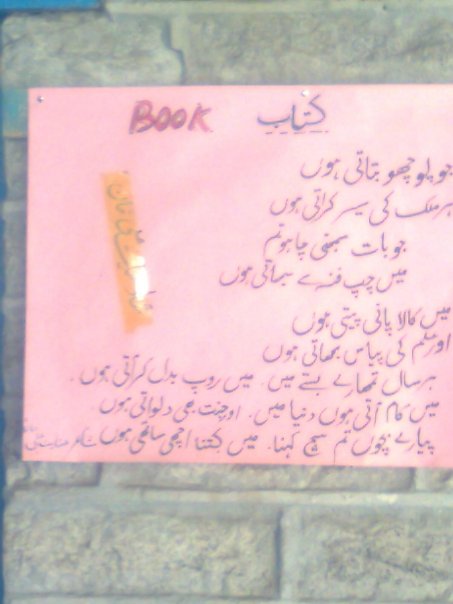 BOOK کتاب
جو پوچھو بتاتی ہوں
ہر ملک کی سیر کراتی ہوں
جو بات سمجھنی چاہو تم
میں چپ سے سمجھاتی ہوں
میں کالا پانی پیتی ہوں
اور علم کی پیاس بجھاتی ہوں
ہر سال تمھارے بستے میں۔ میں روپ بدل کر آتی ہوں۔
میں کام آتی ہوں دنیا میں۔ اور جنت بھی دلواتی ہوں۔
پیارے بچوں تم سچ کہنا۔ میں کتنا اچھی ساتھی ہوں